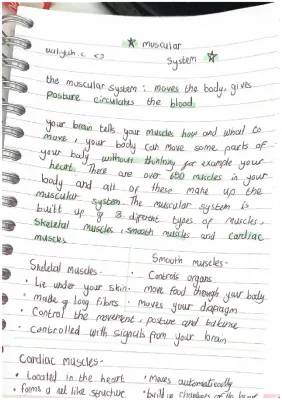 muscular
system
the muscular system : moves the body, gives
posture circulates the blood
your brain tells your muscles how and what to
move, your body can move some parts of
your body without thinking for example your
heart. There are over 600 muscles in your
body and all of these make up the
muscular system. The muscular system is
built up of 3 different types of muscles,
Skeletal muscles, smooth muscles and cardiac
muscles
Skeletal muscles-
• Lie under your skin
• made of long fibres
• Control the movement, posture and balance
• Controlled with signals from your brain
Smooth muscles-
• Controls organs
• move food through your body
• moves your diaphragm
Cardiac muscles-
• Located in the heart
• forms a net like structure
• moves automatically
• build up chambers of the heart